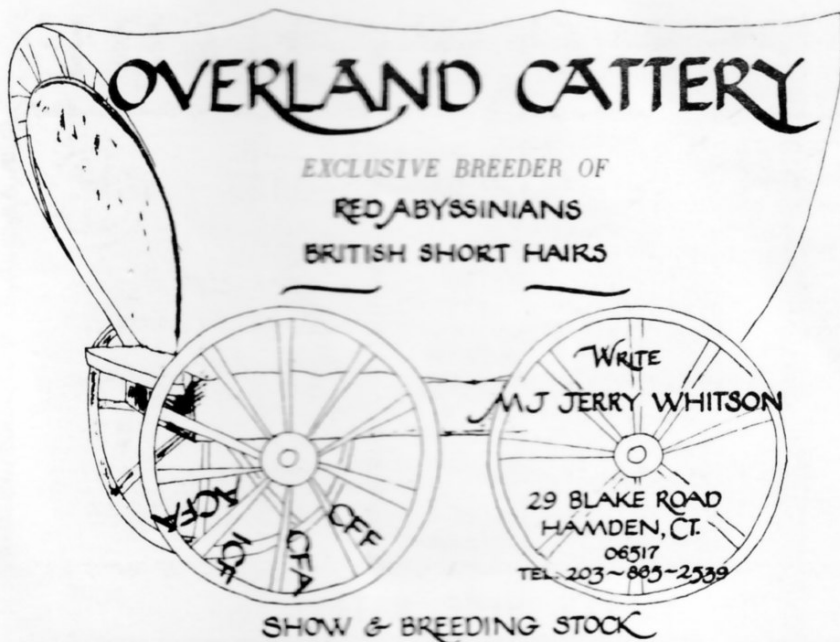 OVERLAND CATTERY
EXCLUSIVE BREEDER OF
RED ABYSSINIANS
BRITISH SHORT HAIRS
WRITE
MJ JERRY WHITSON
29 BLAKE ROAD
HAMDEN, CT.
06517
TEL. 203~865~2539
ACFA
CFA
CFF
SHOW & BREEDING STOCK